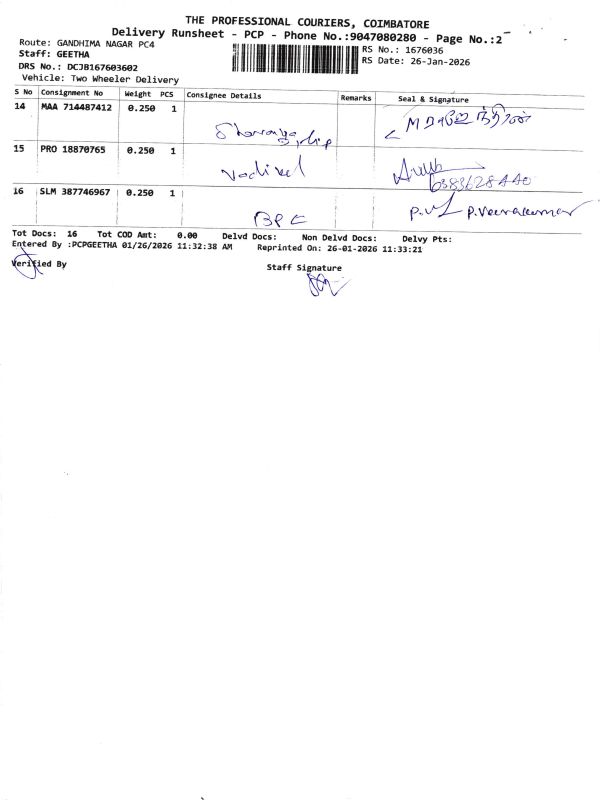 THE PROFESSIONAL COURIERS, COIMBATORE
Delivery Runsheet - PCP - Phone No.:9047080280 - Page No.:2
Route: GANDHIMA NAGAR PC4
RS No.: 1676036
Staff: GEETHA
RS Date: 26-Jan-2026
DRS No.: DCJB167603602
Vehicle: Two Wheeler Delivery
S No Consignment No Weight PCS Consignee Details Remarks Seal & Signature
14 MAA 714487412 0.250 1
15 PRO 18870765 0.250 1 Vadivel
16 SLM 387746967 0.250 1 P.Veerakumar
Tot Docs: 16 Tot COD Amt: 0.00 Delvd Docs: Non Delvd Docs: Delvy Pts:
Entered By :PCPGEETHA 01/26/2026 11:32:38 AM Reprinted On: 26-01-2026 11:33:21
Verified By
Staff Signature